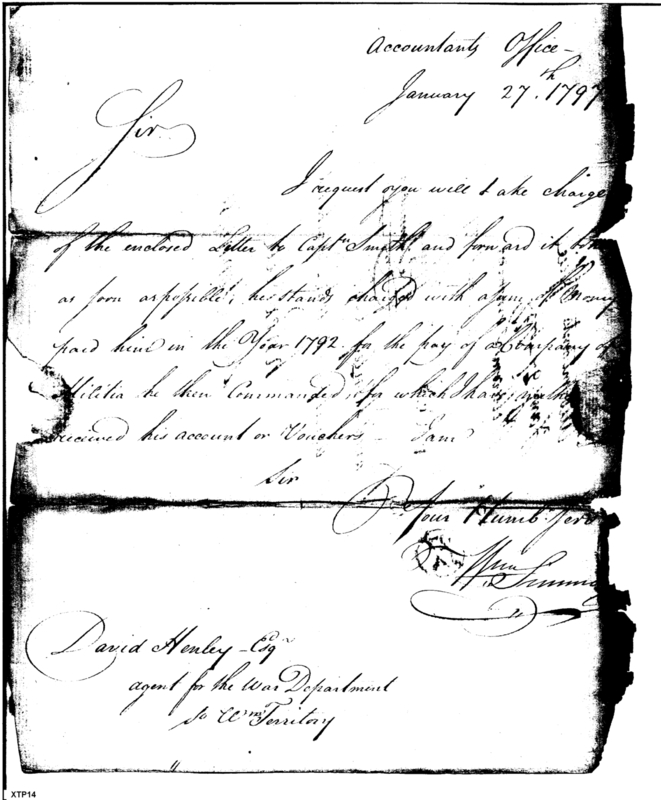 Accountants Office –
January 27.th 1797
Sir
I request you will take charge
of the enclosed Letter to Captn. Smith and forward it
as soon as possible, he stands charged with a sum of Money
paid him in the Year 1792 for the pay of a Company of
Militia he then Commanded, for which I have
received his account or Vouchers I am
Sir
Your Humb. Serv
Wm Simmo
David Henley – Esqr
agent for the War Department
So Wn Territory
XTP14